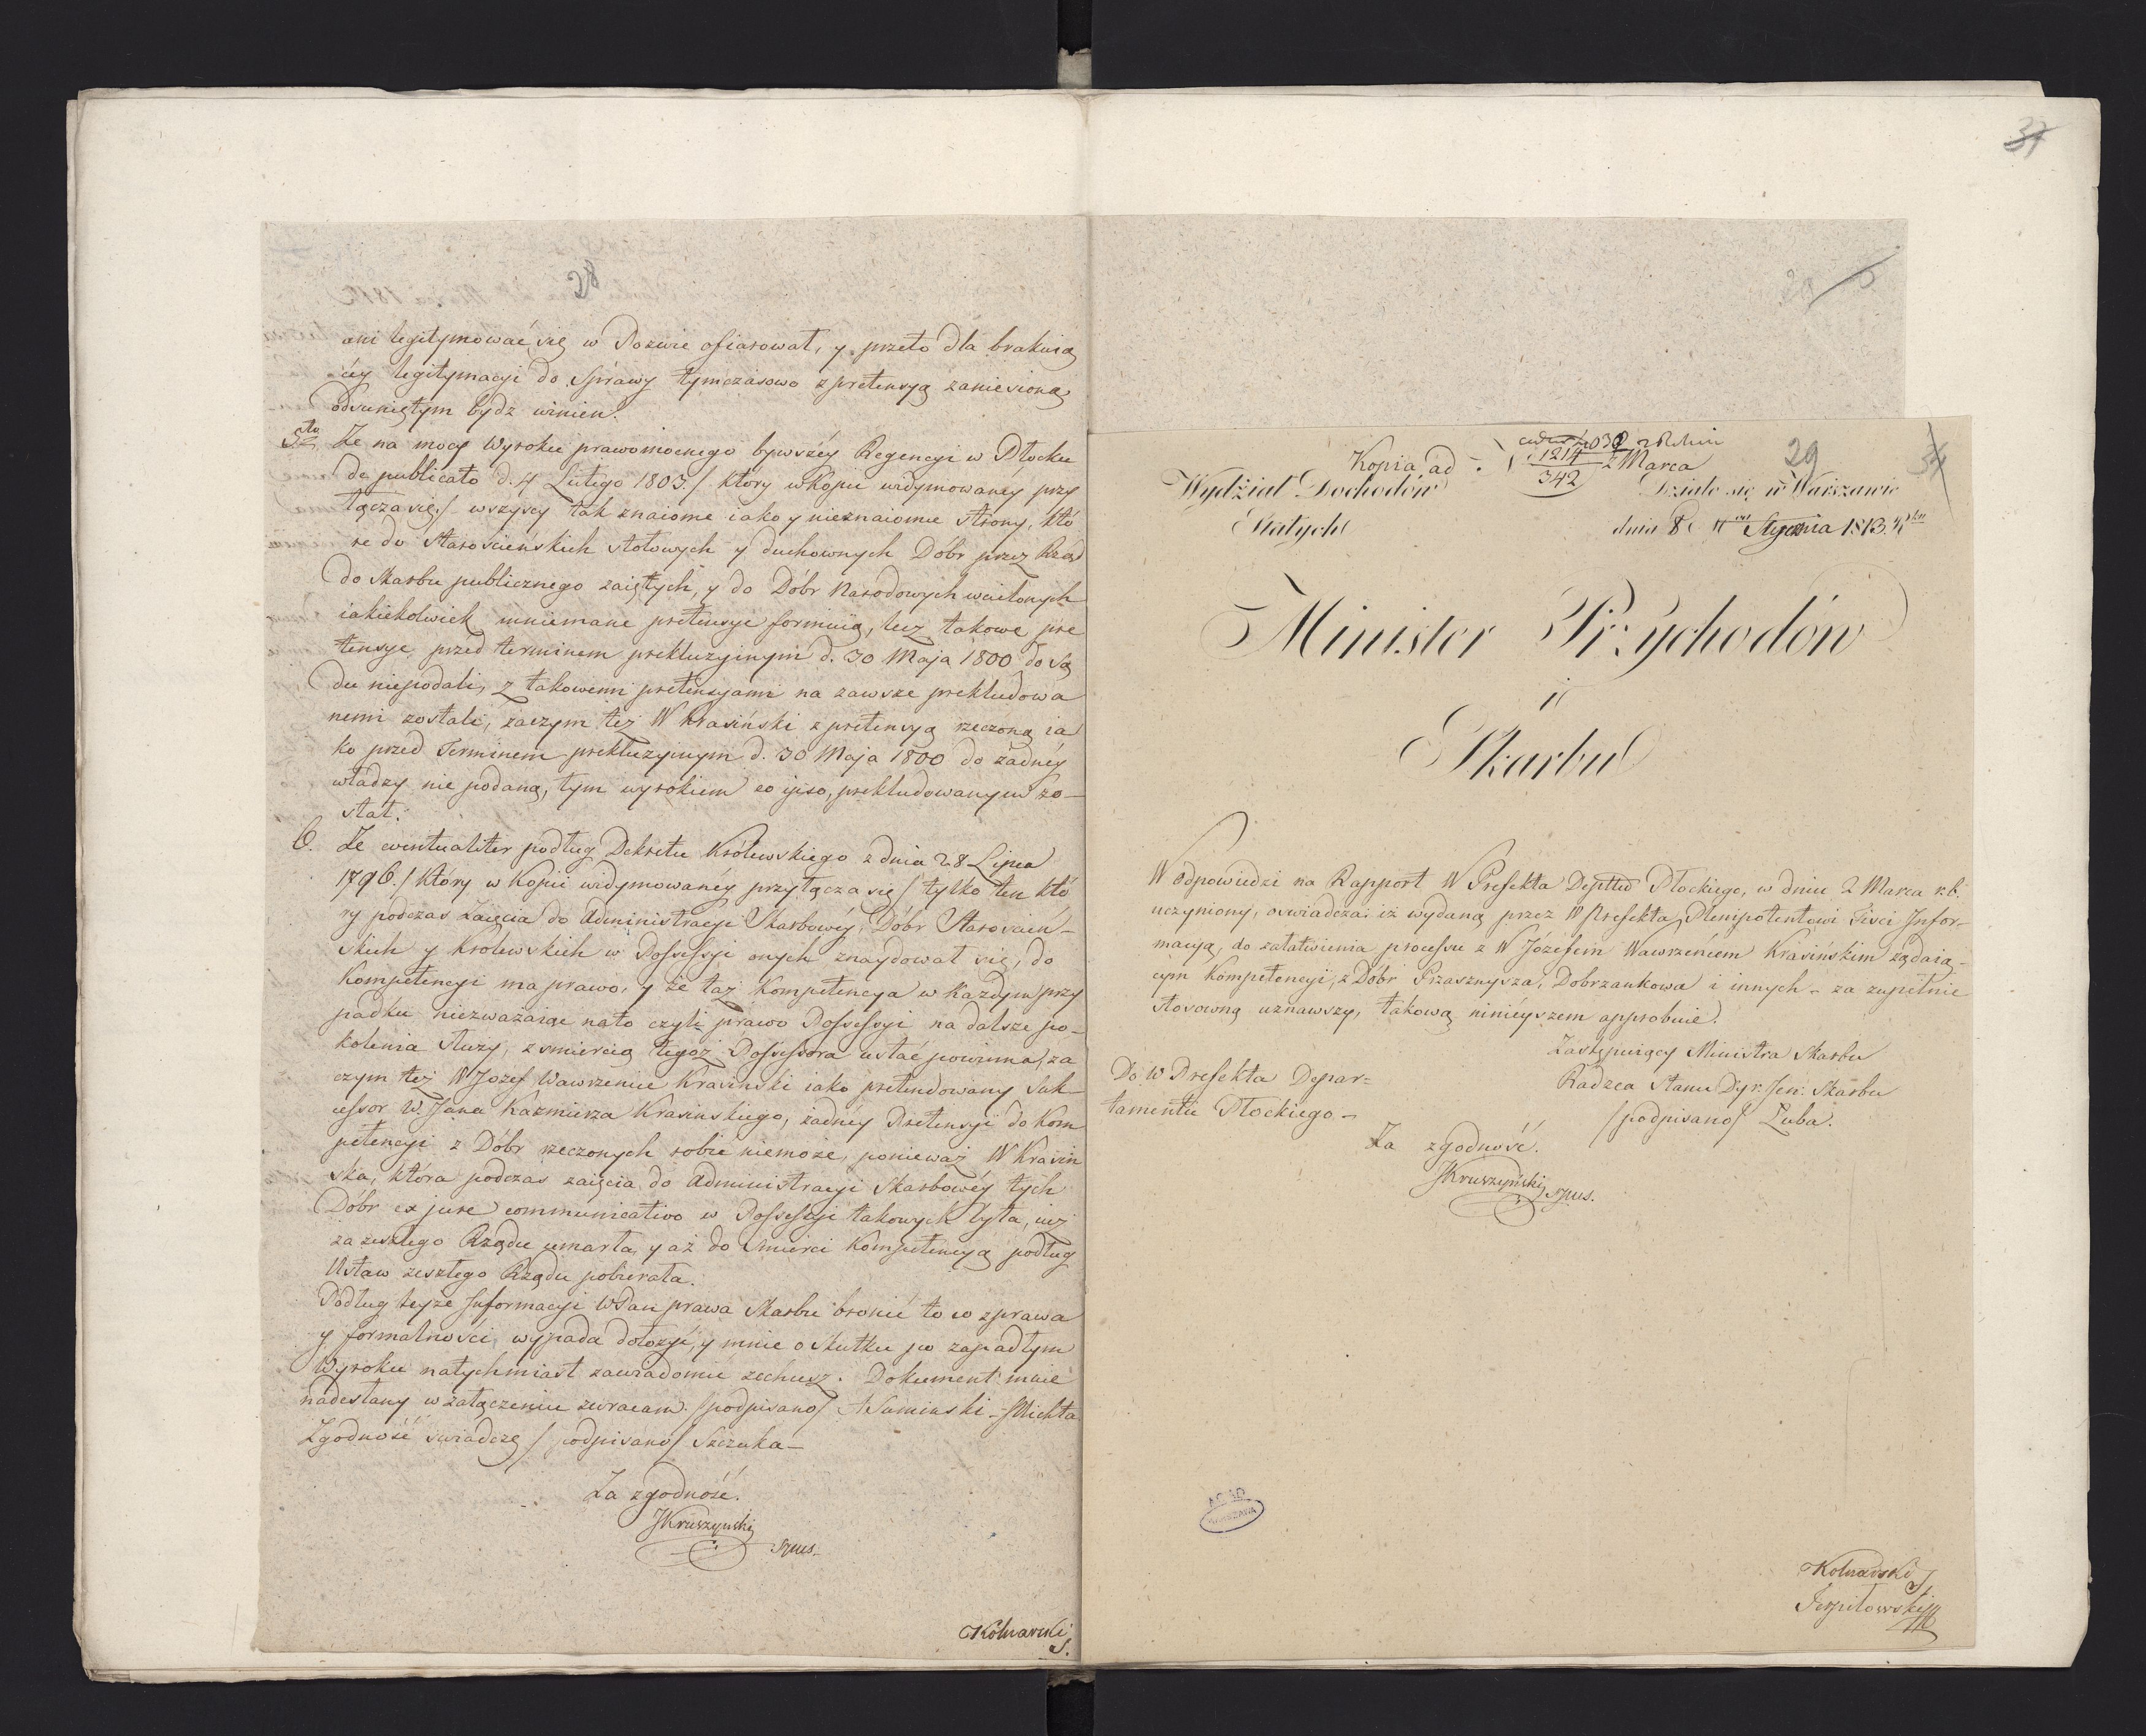 28
ani legitymować się w Pozwie ofiarował, y przeto dla brakuią
céy legitymacyi do Sprawy tymczasowo z pretensyą zaniesioną
odsuniętym bydz winien.
5to Że na mocy Wyroku prawomocnego bywszéy Regencyi w Płocku
de publicato d. 4 Lutego 1803. / który w Kopii widymowanéy przy
łącza się / wszyscy tak znaiome iako y nieznaiome Strony, któ
re do Starościeńskich stołowych y duchownych Dóbr przez Rząd
do Skarbu publicznego zaiętych, y do Dóbr Narodowych wcielonych
iakiekolwiek mniemane pretensye formuią, lecz takowe pre
tensye przed terminem prekluzyinym d. 30 Maja 1800 do Są
du niepodali, z takowemi pretensyami na zawsze prekludowa
nemi zostali, zaczym też W Krasiński z pretensyą rzeczoną ia
ko przed Terminem prekluzyinym d. 30 Maja 1800 do żadnéy
władzy nie podaną, tym wyrokiem eo ipso, prekludowanym zo–
stał.
6. Że eventualiter podług Dekretu Królewskiego z dnia 28 Lipca
1796. / Który w Kopii widymowanéy przyłącza się / tylko ten któ
ry podczas Zaięcia do Administracyi Skarbowéy, Dóbr Staroścień–
skich y Krolewskich w Possessyi onych znaydował się, do
Kompetencyi ma prawo, y że taż Kompetencya w Każdym przy
padku niezważaiąc na to czyli prawo Possessyi na dalsze po–
kolenia służy, z smiercią tegoż Possessora ustać powinna, za
czym też W Jozef Wawrzeniec Krasinski iako pretendowany Suk–
cessor W. Jana Kazmierza Krasinskiego, żadnéy Pretensyi do Kom
petencyi z Dóbr rzeczonych robić niemoże, ponieważ W Krasin
ska, która podczas zaięcia do Administracyi Skarbowéy tych
Dóbr ex jure communicativo w Possessyi takowych była, iuż
za zeszłego Rządu umarła, y aż do Smierci Kompetencyą podług
Ustaw zeszłego Rządu pobierała.
Podług teyże Informacyi WPan prawa Skarbu bronić to co z prawa
y formalności wypada dołożyć, y mnie o Skutku po zapadłym
Wyroku natychmiast zawiadomić zechcesz. Dokument mnie
nadesłany w załączeniu zwracam. /podpisano/ A Suminski – Michta
Zgodność świadczę / podpisano / Szczuka –
Za zgodność.
JKruszyński
Spus.
Kolnarski
S.
37
29
Kopia ad
1214 z Marca
342
29
Wydział Dochodów
Stałych
Działo się w Warszawie
dnia 8 Stycznia 1813.
Minister Przychodów
i
Skarbu
W odpowiedzi na Rapport W Prefekta Depttu Płockiego, w dniu 2 Marca r.b.
uczyniony, oświadcza: iż wydaną przez W Prefekta Plenipotentowi Fisci Infor–
macyą, do załatwienia processu z W Józefem Wawrzeńcem Krasińskim żądaią–
cym Kompetencyi, z Dóbr Przasnysza, Dobrzankowa i innych – za zupełnie
stosowną uznawszy, takową ninieyszem approbuie.
Zastępuiący Ministra Skarbu
Radzca Stanu Dyr: Jen: Skarbu
/podpisano/ Łuba.
Do W Prefekta Depar=
tamentu Płockiego –
Za zgodność.
JKruszyński Spus.
AGAD
WARSZAWA